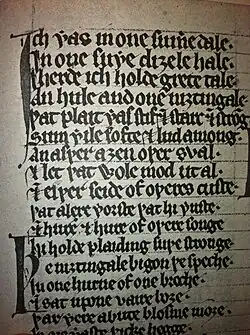 Ich ƿas in one sumere dale
In one suþe diȝele hale
Iherde ich holde grete tale
An hule and one niȝtingale
Þat plait ƿas stif & starc & strong
Sum ƿile softe & lud among
An aiþer aȝen oþer sval
& let þat ƿole mod ut al
& eiþer seide of oþeres custe
Þat alre ƿorste þat hi ƿuste
& hure & hure of oþere songe
Hi holde plaiding suþe stronge
Þe niȝtingale bigon þe speche
In one hurne of one breche
& sat upone vaire boȝe
Þar ƿere abute blosme inoȝe